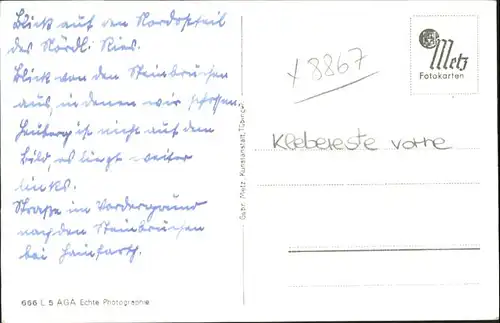 Blick auf den Nordostteil
des Nördl. Ries.
Blick von den Steinbrüchen
aus, in denen wir schossen.
ist nicht auf dem
Bild, es liegt weiter
links.
Straße im Vordergrund
nach den Steinbrüchen
bei Hainfarth.
666 L 5 AGA Echte Photographie
Gebr. Metz, Kunstanstalt, Tübingen
x 8867
Metz
Fotokarten
Klebereste vorne